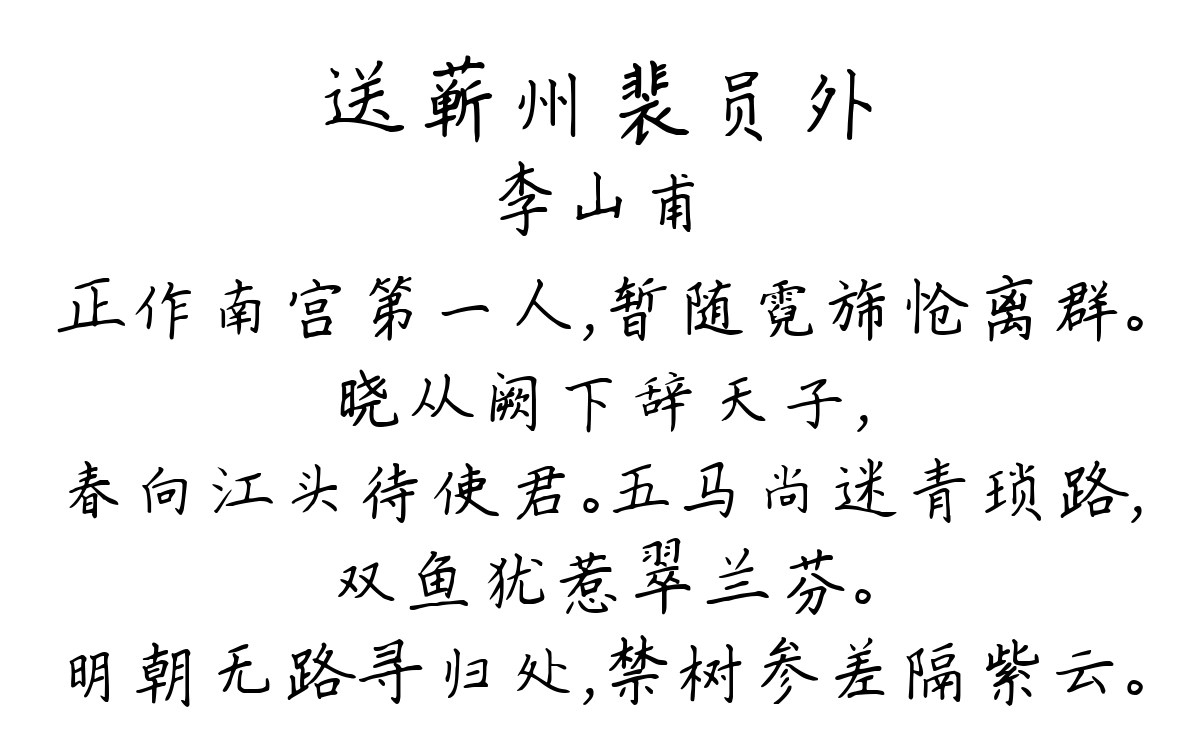 送蕲州裴员外
李山甫
正作南宫第一人,暂随霓旆怆离群。
晓从阙下辞天子,
春向江头待使君。五马尚迷青琐路,
双鱼犹惹翠兰芬。
明朝无路寻归处,禁树参差隔紫云。